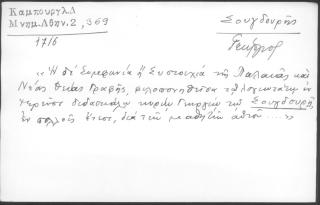 Καμπούργλ.Δ
Μνημ.Αθην.2,369
1716
Σουγδουρῆς
Γεώργιος
"Ἡ δέ Συμφωνία ἤ Συστοιχία τῆς Παλαιᾶς καὶ
Νέας Θείας Γραφῆς, φιλοπονηθεῖσα τῷ λογιωτάτῳ ἐν
ἱερεῦσι διδασκάλῳ κυρίῳ Γεωργίῳ τῷ Σουγδουρῇ
ἐν πολλοῖς ἔτεσι, διὰ τῶν μαθητῶν αὐτοῦ ....."